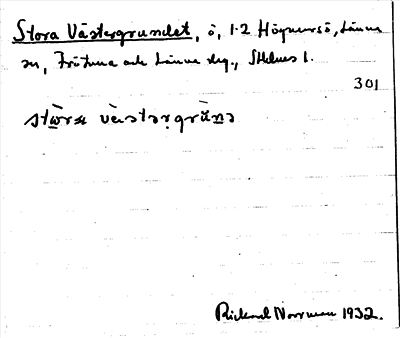 Stora Västergrundet, ö, 1·2 Högmarsö, Länna
sn, Frötuna och Länna skg., Sthlms l.
301
stɷ̀ra vä̀stərgrùnə
Rickard Norrman 1932.